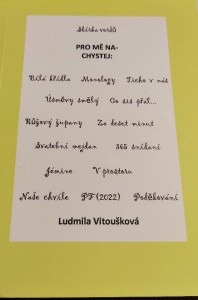 Sbírka veršů
PRO MĚ NA-
CHYSTEJ:
Bílá křídla Monology Ticho v nás
Úsměvy snělý Co sis přál...
Růžový župany Za deset minut
Svatební mejdan 365 snídaní
Jémine V prostoru
Naše chvíle PF (2022) Poděkování
Ludmila Vitoušková